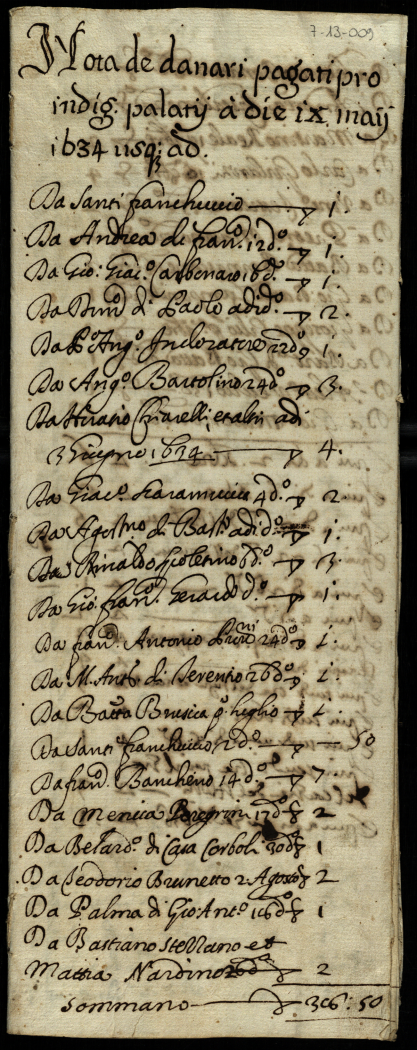 7-13-009
Nota de danari pagati pro
indig. palatij à die ix maij
1634 usq; ad.
Da Santi franchuccio — 1.
Da Andrea di fran.º 12 dº 1.
Da Gio: Giac.º Carbonaro 16 dº. 1.
Da di Paolo adi dº. 2.
Da Pº Ang.º Indoratore 22 dº 1.
Da Ang.º Bartolino 24 dº 3.
Da Horatio Chiarelli et altri adi
3 Giugno 1634 — 4.
Da Giac.º Scaramuccia 4 dº 2.
Da Agostno di Batt.ª adi dº 1.
Da Rinaldo dº. 3.
Da Gio: fran.º dº. 1.
Da fran.º Antonio 24 dº 1.
Da M. Ant.º di Serenio 26 dº 1.
Da Batta Brusica pº luglio 1.
Da Santi franchuccio 12 dº. — 50
Da fran.º Bancheno 14 dº. 7.
Da Menica Peregrin 17 dº 2
Da Belard.º di Casa Corboli 30 dº 1
Da Teodorio Brunetto 2 Agosto 2
Da Palma di Gio: Ant.º 16 dº 1
Da Bastiano Stellano et
Mattia Nardino 26 dº 2
Sommano — 36: 50